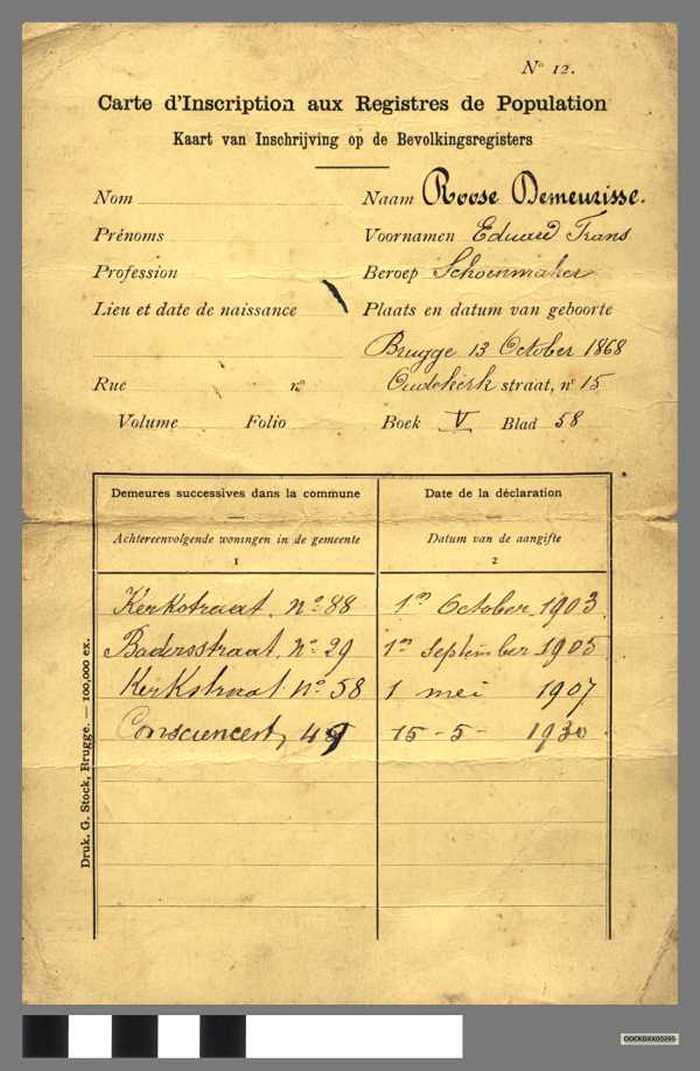 Nº 12.
Carte d'Inscription aux Registres de Population
Kaart van Inschrijving op de Bevolkingsregisters
Nom Naam Roose Demeurisse.
Prénoms Voornamen Eduard Frans
Profession Beroep Schoenmaker
Lieu et date de naissance Plaats en datum van geboorte
Brugge 13 October 1868
Rue nº Oudekerk straat, nº 15
Volume Folio Boek V Blad 58
Demeures successives dans la commune Date de la déclaration
Achtereenvolgende woningen in de gemeente Datum van de aangifte
1 2
Kerkstraat. nº 88 1n October 1903
Badersstraat. Nº 29 1n September 1905
Kerkstraat. nº 58 1 mei 1907
Consciencest, 49 15-5- 1930
Druk. G. Stock, Brugge. — 100,000 ex.
OOCKDXX00295